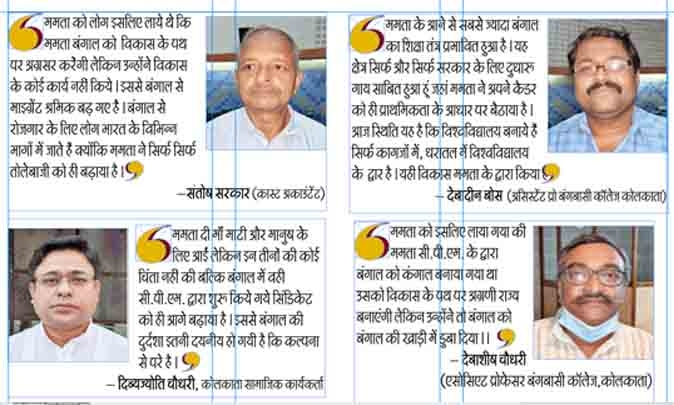 ममता को लोग इसलिए लाये थे कि
ममता बंगाल को विकास के पथ
पर अग्रसर करेंगी लेकिन उन्होंने विकास
के कोई कार्य नहीं किये। इससे बंगाल से
माइग्रेंट श्रमिक बड़ गए है। बंगाल से
रोजगार के लिए लोग भारत के विभिन्न
भागों में जाते है क्योंकि ममता ने सिर्फ सिर्फ
तोलेबाजी को ही बढ़ाया है।
–संतोष सरकार (कास्ट अकाउंटेंट)
ममता के आने से सबसे ज्यादा बंगाल
का शिक्षा तंत्र प्रभावित हुआ है। यह
क्षेत्र सिर्फ और सिर्फ सरकार के लिए दुधारू
गाय साबित हुआ हूं जहां ममता ने अपने कैडर
को ही प्राथमिकता के आधार पर बैठाया है।
आज स्थिति यह है कि विश्वविद्यालय बनाये हैं
सिर्फ कागजों में, धरातल में विश्वविद्यालय
के द्वार है। यही विकास ममता के द्वारा किया
– देबादीन बोस (असिस्टेंट प्रो बंगबासी कॉलेज कोलकाता)
ममता दी माँ माटी और मानुष के
लिए आईं लेकिन इन तीनों की कोई
चिंता नहीं की बल्कि बंगाल में वही
सी.पी.एम. द्वारा शुरू किये गये सिंडिकेट
को ही आगे बढ़ाया है। इससे बंगाल की
दुर्दशा इतनी दयनीय हो गयी है कि कल्पना
से परे है।
– दिव्यज्योति चौधरी, कोलकाता सामाजिक कार्यकर्ता
ममता को इसलिए लाया गया की
ममता सी.पी.एम. के द्वारा
बंगाल को कंगाल बनाया गया था
उसको विकास के पथ पर अग्रणी राज्य
बनाएंगी लेकिन उन्होंने तो बंगाल को
बंगाल की खाड़ी में डुबा दिया।।
– देबाशीष चौधरी
(एसोसिएट प्रोफेसर बंगबासी कॉलेज,कोलकाता)